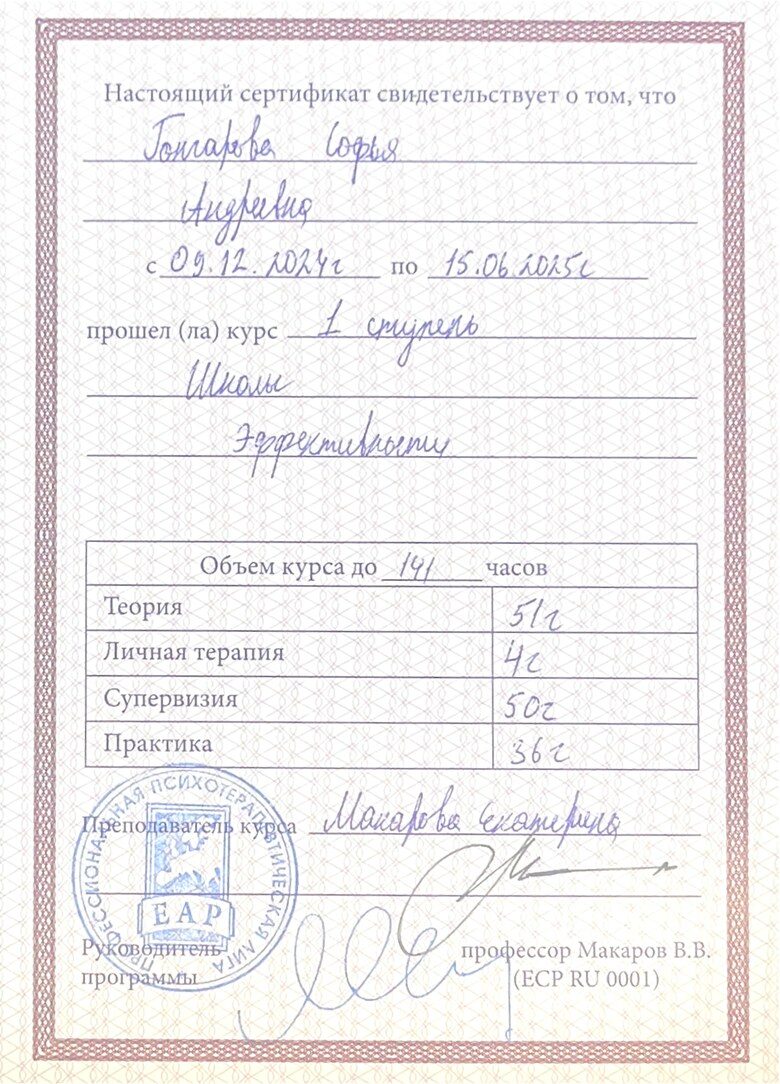 Настоящий сертификат свидетельствует о том, что
Гончарова Софья
Андреевна
с 09.12.2024г по 15.06.2025г
прошел (ла) курс 1 ступень
Школы
Эффективности
Объем курса до 141 часов
Теория 51г
Личная терапия 4г
Супервизия 50г
Практика 36г
ПРОФЕССИОНАЛЬНАЯ ПСИХОТЕРАПЕВТИЧЕСКАЯ ЛИГА
Преподаватель курса Макарова Екатерина
EAP
Руководитель
программы
профессор Макаров В.В.
(ECP RU 0001)